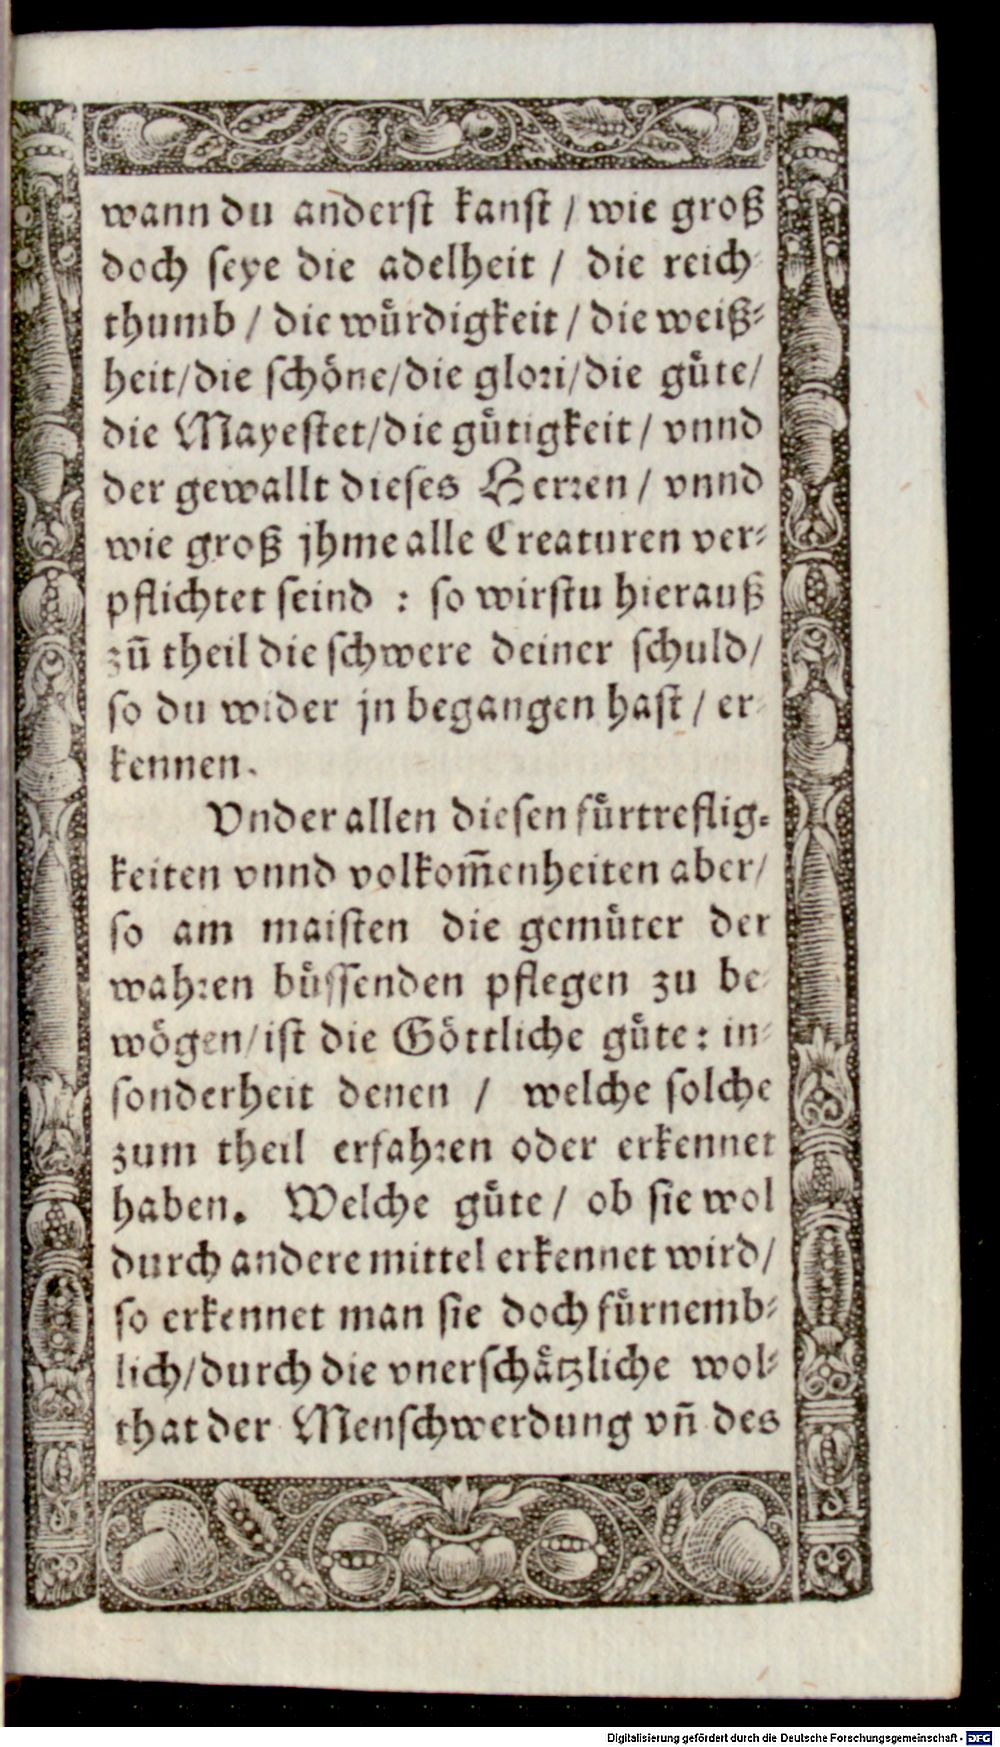 wann du anderst kanst / wie groß
doch seye die adelheit / die reich-
thumb / die wuͤrdigkeit / die weiß-
heit/die schoͤne/die glori/die guͤte/
die Mayestet/die guͤtigkeit / vnnd
der gewallt dieses Herren / vnnd
wie groß jhme alle Creaturen ver-
pflichtet seind : so wirstu hierauß
zuͦ theil die schwere deiner schuld/
so du wider jn begangen hast / er-
kennen.
Vnder allen diesen fuͤrtreflig-
keiten vnnd volkom̃enheiten aber/
so am maisten die gemuͤter der
wahren buͤssenden pflegen zu be-
woͤgen/ist die Goͤttliche guͤte: in-
sonderheit denen / welche solche
zum theil erfahren oder erkennet
haben. Welche guͤte / ob sie wol
durch andere mittel erkennet wird/
so erkennet man sie doch fuͤrnemb-
lich/durch die vnerschaͤtzliche wol-
that der Menschwerdung vn̄ des
Digitalisierung gefördert durch die Deutsche Forschungsgemeinschaft - DFG